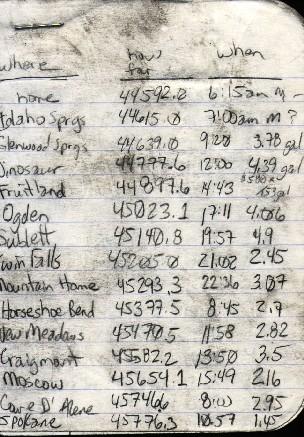 where how far when
home 44592.0 6:15am
Idaho Sprgs 44615.0 7:00am ?
Glenwood Sprgs 44639.0 9:20 3.78 gal
Dinosaur 44777.6 12:00 4.39 gal
Fruitland 44897.6 14:43
Ogden 45023.1 17:11 4.006
Sublett 45140.8 19:57 4.9
Twin Falls 45205.0 21:02 2.45
Mountain Home 45293.3 22:36 3.07
Horseshoe Bend 45377.5 8:45 2.7
New Meadows 45470.5 11:58 2.82
Craigmont 45582.2 13:50 3.5
Moscow 45654.1 15:49 2.16
Coure D'Alene 45746.6 8:00 2.95
Spokane 45776.3 10:57 1.45